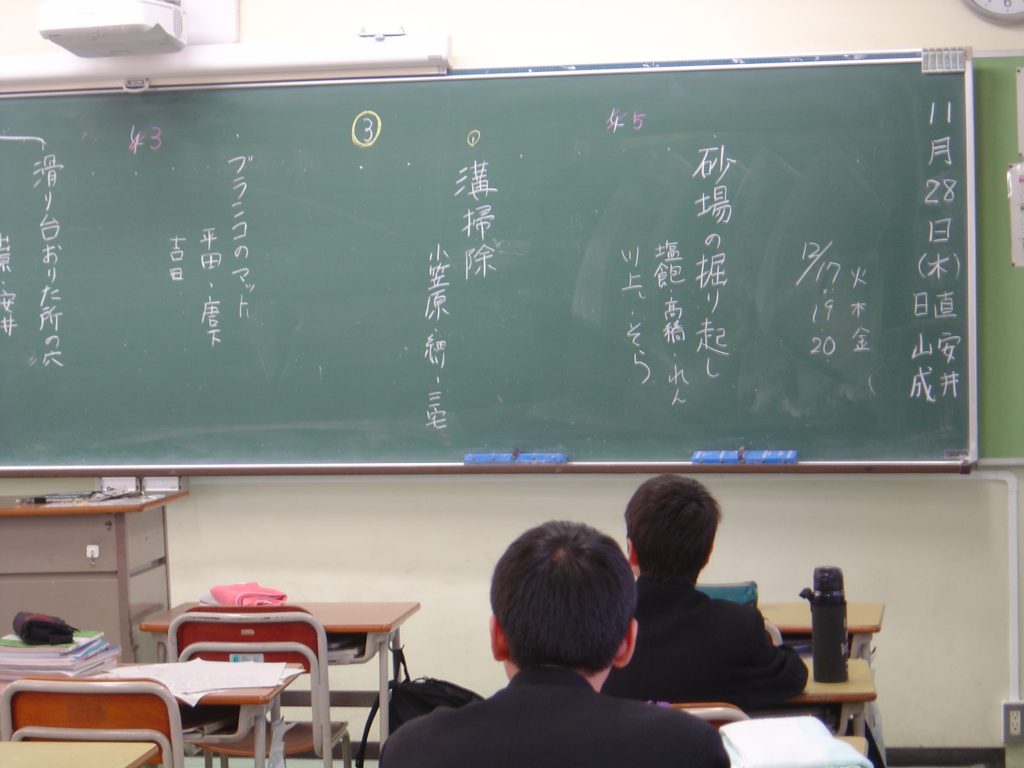 11月28日(木)
日直 安井
山成
12/17 火
19 木
20 金
5
砂場の掘り起し
塩飽 高橋・れん
川上・そら
溝掃除
小笠原・細川・三宅
③
ブランコのマット
平田・唐下
吉田
3
滑り台おりた所の穴